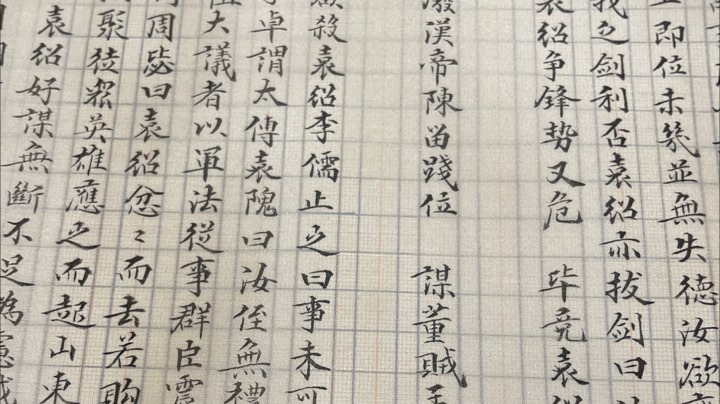 即位未幾並無失德汝欲
我之劍利否袁紹亦拔劍曰
袁紹争鋒势又危 毕竟袁紹
廢漢帝陳留踐位 謀董賊孟
欲殺袁紹李儒止之曰事未可
卓謂太傅袁隗曰汝侄無禮
大議者以軍法從事群臣震
周毖曰袁紹忿〻而去若購
聚徒眾英雄應之而起山東
袁紹好謀無斷不足為慮誠